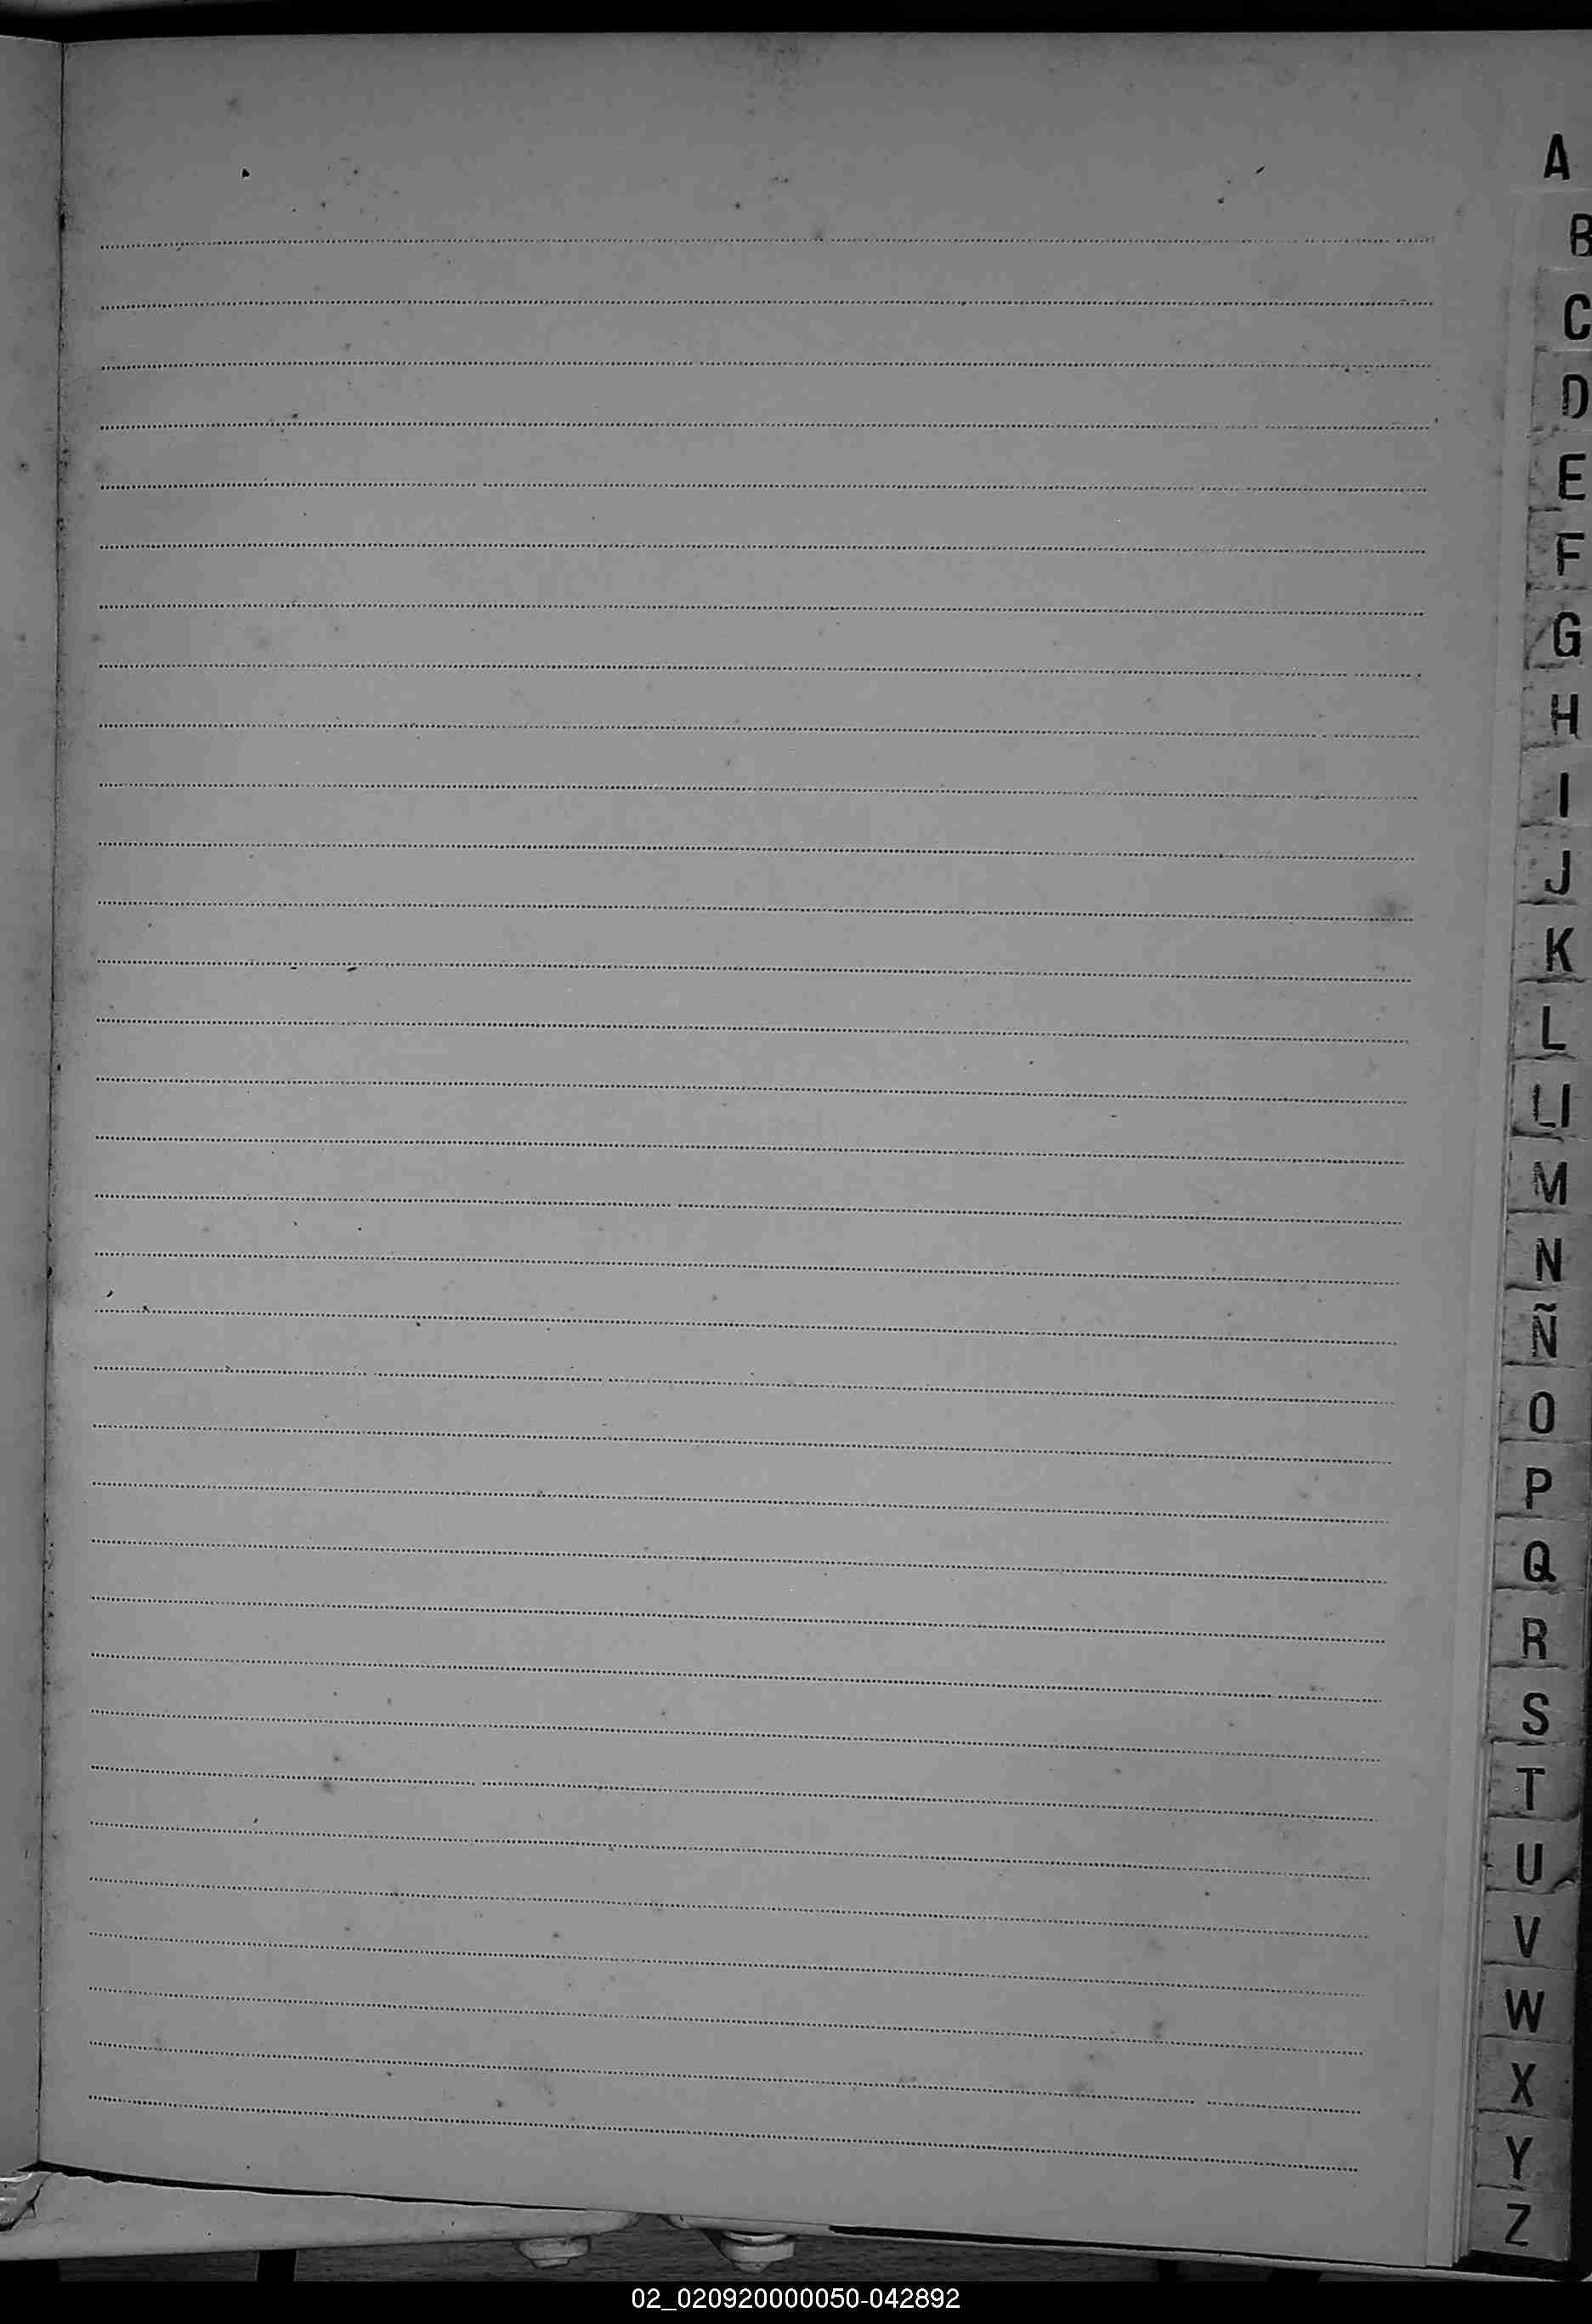 A
B
C
D
E
F
G
H
I
J
K
L
Ll
M
N
Ñ
O
P
Q
R
S
T
U
V
W
X
Y
Z
02_020920000050-042892